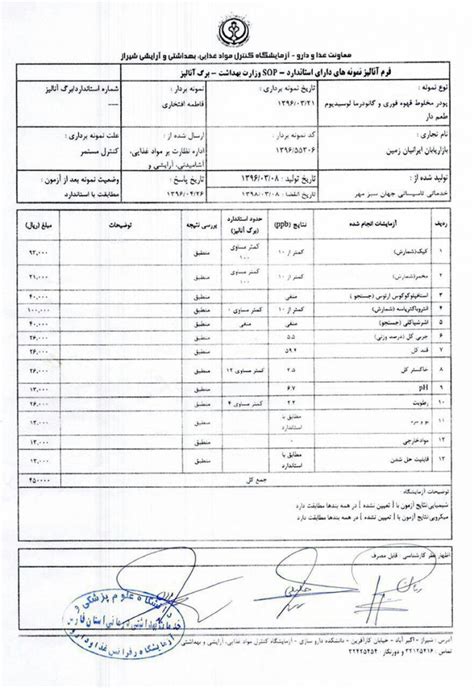 معاونت غذا و دارو - آزمایشگاه کنترل مواد غذایی، بهداشتی و آرایشی شیراز
فرم آنالیز نمونه های دارای استاندارد - SOP وزارت بهداشت - برگ آنالیز
نوع نمونه :
پودر مخلوط قهوه فوری و گانودرما لوسیدیوم
طعم دار
تاریخ نمونه برداری :
۱۳۹۶/۰۳/۲۱
نمونه بردار :
فاطمه افتخاری
شماره استاندارد/برگ آنالیز
نام تجاری :
بازاریابان ایرانیان زمین
کد نمونه بردار :
۱۳۹۶/۵۵۳۰۶
ارسال شده از :
اداره نظارت بر مواد غذایی،
آشامیدنی، آرایشی و
علت نمونه برداری :
کنترل مستمر
تولید شده از :
خدماتی تاسیساتی جهان سبز مهر
تاریخ تولید : ۱۳۹۶/۰۳/۰۸
تاریخ انقضا : ۱۳۹۸/۰۳/۰۸
تاریخ پاسخ :
۱۳۹۶/۰۴/۲۶
وضعیت نمونه بعد از آزمون :
مطابقت با استاندارد
ردیف آزمایشات انجام شده نتایج (ppb) حدود استاندارد (برگ آنالیز) بررسی نتیجه توضیحات مبلغ (ریال)
۱ کپک(شمارش) کمتر از ۱۰ کمتر مساوی ۱۰۰ منطبق ۹۲,۰۰۰
۲ مخمر(شمارش) کمتر از ۱۰ کمتر مساوی ۱۰۰ منطبق ۲۱,۰۰۰
۳ استافیلوکوکوس ارئوس (جستجو) منفی منفی منطبق ۴۰,۰۰۰
۴ انتروباکتریاسه (شمارش) کمتر از ۱۰ کمتر مساوی منطبق ۱۰۰,۰۰۰
۵ اشرشیاکلی (جستجو) منفی منفی منطبق ۴۰,۰۰۰
۶ چربی کل (درصد وزنی) ۵.۵ منطبق ۲۶,۰۰۰
۷ قند کل ۵۹.۴ منطبق ۲۶,۰۰۰
۸ خاکستر کل کمتر مساوی ۱۲ منطبق ۲۶,۰۰۰
۹ pH ۶.۷ منطبق ۱۳,۰۰۰
۱۰ رطوبت ۲.۲ کمتر مساوی ۴ منطبق ۲۶,۰۰۰
۱۱ بو و مزه مطابق با استاندارد منطبق ۱۳,۰۰۰
۱۲ موادخارجی منطبق ۱۳,۰۰۰
۱۳ قابلیت حل شدن مطابق با استاندارد منطبق ۱۳,۰۰۰
جمع کل ۴۵۰۰۰۰
توضیحات آزمایشگاه :
شیمیایی نتایج آزمون با [ تعیین نشده ] در همه بندها مطابقت دارد
میکروبی نتایج آزمون با [ تعیین نشده ] در همه بندها مطابقت دارد
اظهار نظر کارشناسی : قابل مصرف
دانشگاه علوم پزشکی و
خدمات بهداشتی درمانی استان فارس
آزمایشگاه رفرانس غذا و دارو
آدرس : شیراز - اکبر آباد - خیابان کارآفرین - دانشکده دارو سازی - آزمایشگاه کنترل مواد غذایی، آرایشی و بهداشتی
تماس : ۳۲۴۲۵۳۱۶ و دورنگار : ۳۲۴۲۵۴۵۴